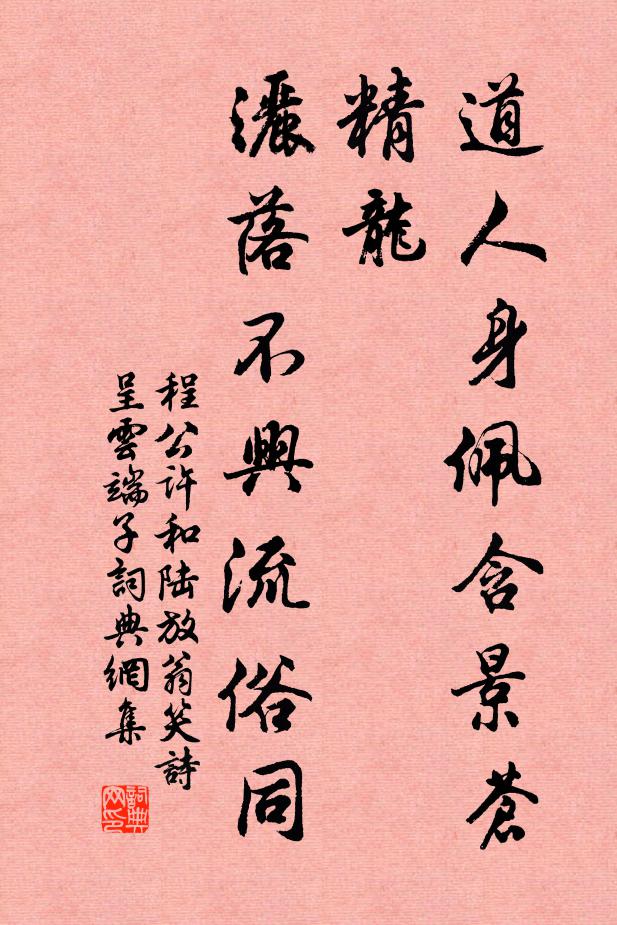 道人身佩含景蒼
精龍
灑落不與流俗同
程公許和陸放翁笑詩
呈雲端子詞典網集
詞典
网印